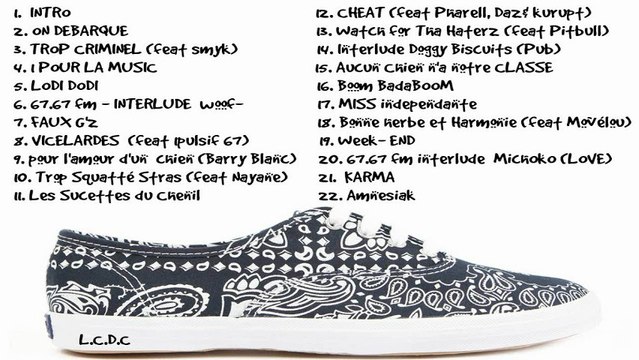 1. INTRO
2. ON DEBARQUE
3. TROP CRIMINEL (feat smyk)
4. 1 POUR LA MUSIC
5. LODI DODI
6. 67.67 fm - INTERLUDE woof-
7. FAUX G'Z
8. VICELARDES (feat Ipulsif 67)
9. pour l'amour d'un chien (Barry Blanc)
10. Trop Squatté Stras (feat Nayane)
11. Les Sucettes du Chenil
12. CHEAT (feat Pharell, Daz& Kurupt)
13. Watch for Tha Haterz (feat Pitbull)
14. Interlude Doggy Biscuits (Pub)
15. Aucun Chien n'a notre CLASSE
16. Boom BadaBooM
17. MISS independante
18. Bonne herbe et Harmonie (feat Movélou)
19. Week-END
20. 67.67 fm interlude Michoko (LoVE)
21. KARMA
22. Amnesiak
L.C.D.C